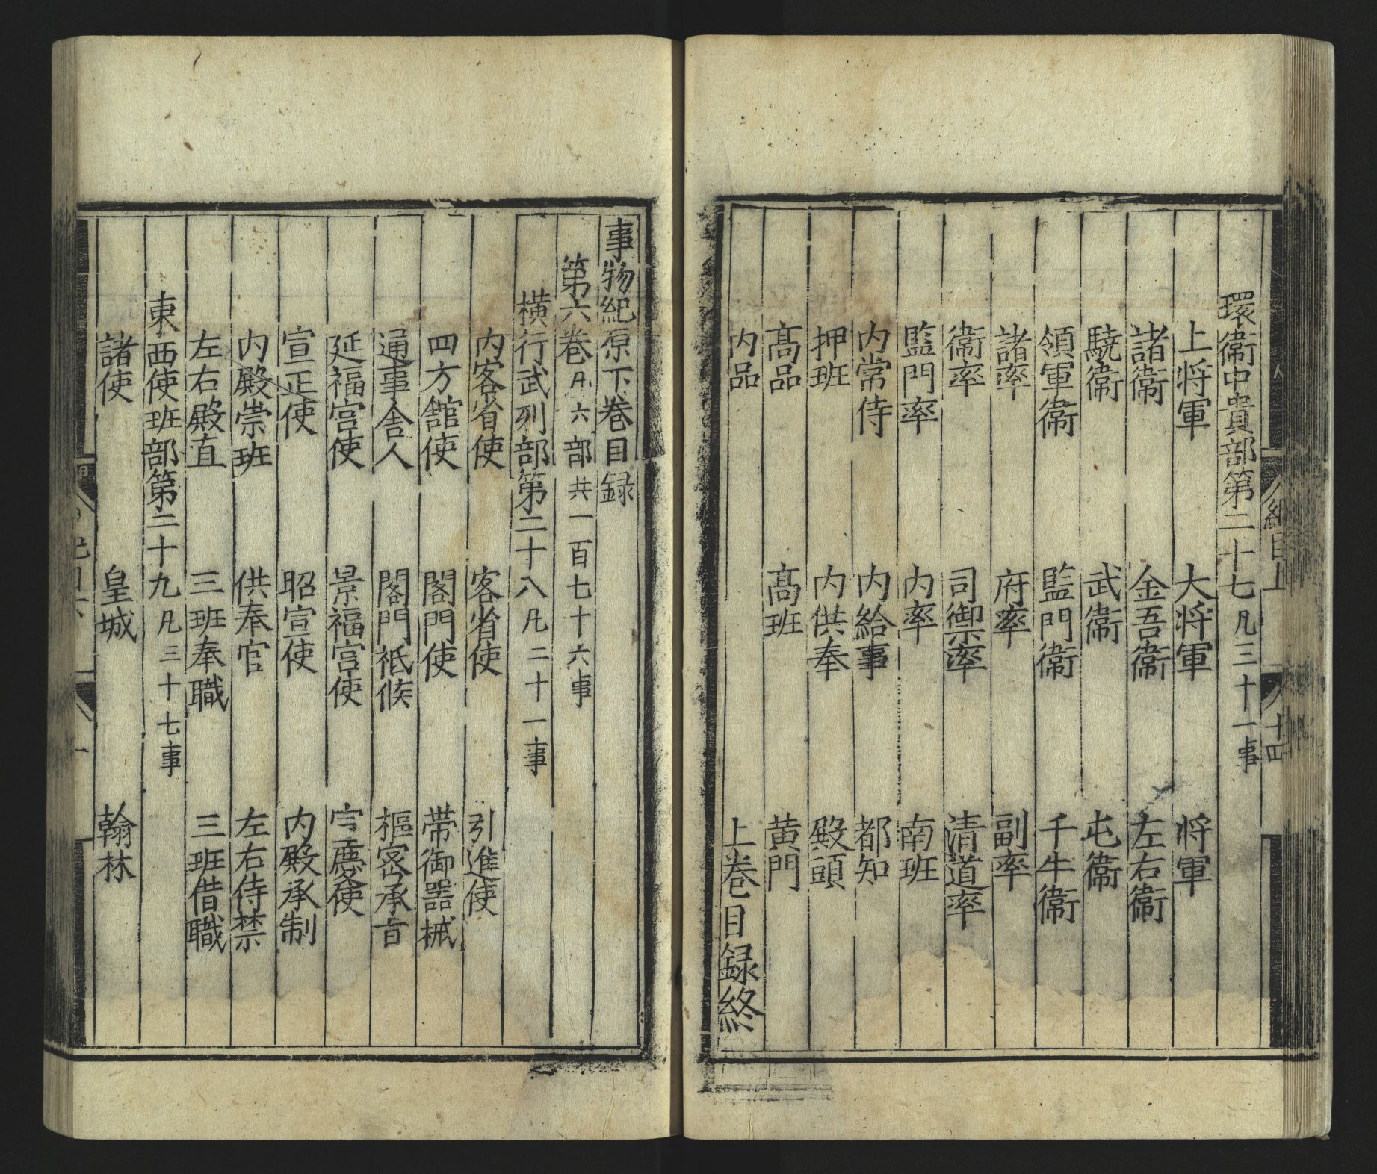 環衛中貴部第二十七凡三十一事
上将軍 大将軍 将軍
諸衛 金吾衛 左右衛
驍衛 武衛 屯衛
領軍衛 監門衛 千牛衛
諸率 府率 副率
衛率 司禦率 清道率
監門率 内率 南班
内常侍 内給事 都知
押班 内供奉 殿頭
髙品 髙班 黄門
内品 上卷目録終
事物紀原下卷目録
第六卷凡六部共一百七十六事
横行武列部第二十八凡二十一事
内客省使 客省使 引進使
四方館使 閤門使 帯御器械
通事舎人 閤門祗候 樞宻承旨
延福宫使 景福宫使 宣慶使
宣正使 昭宣使 内殿承制
内殿崇班 供奉官 左右侍禁
左右殿直 三班奉職 三班借職
東西使班部第二十九凡三十七事
諸使 皇城 翰林